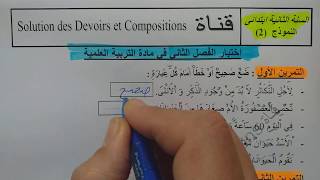 قناة Solution des Devoirs et Compositions
السنة الثانية ابتدائي
النموذج (2)
إختبار الفصل الثاني في مادة التربية العلمية
التمرين الأول : ضع صحيح أو خطأ أمام كل عبارة.
لأجل التكاثر لا بد من وجود الذكر والأنثى. صحيح
تحضن العصفورة الأم صغارها
في اليوم 60 ساعة
الأسد حيوان
تقوم الحيوانات
التمرين الثاني